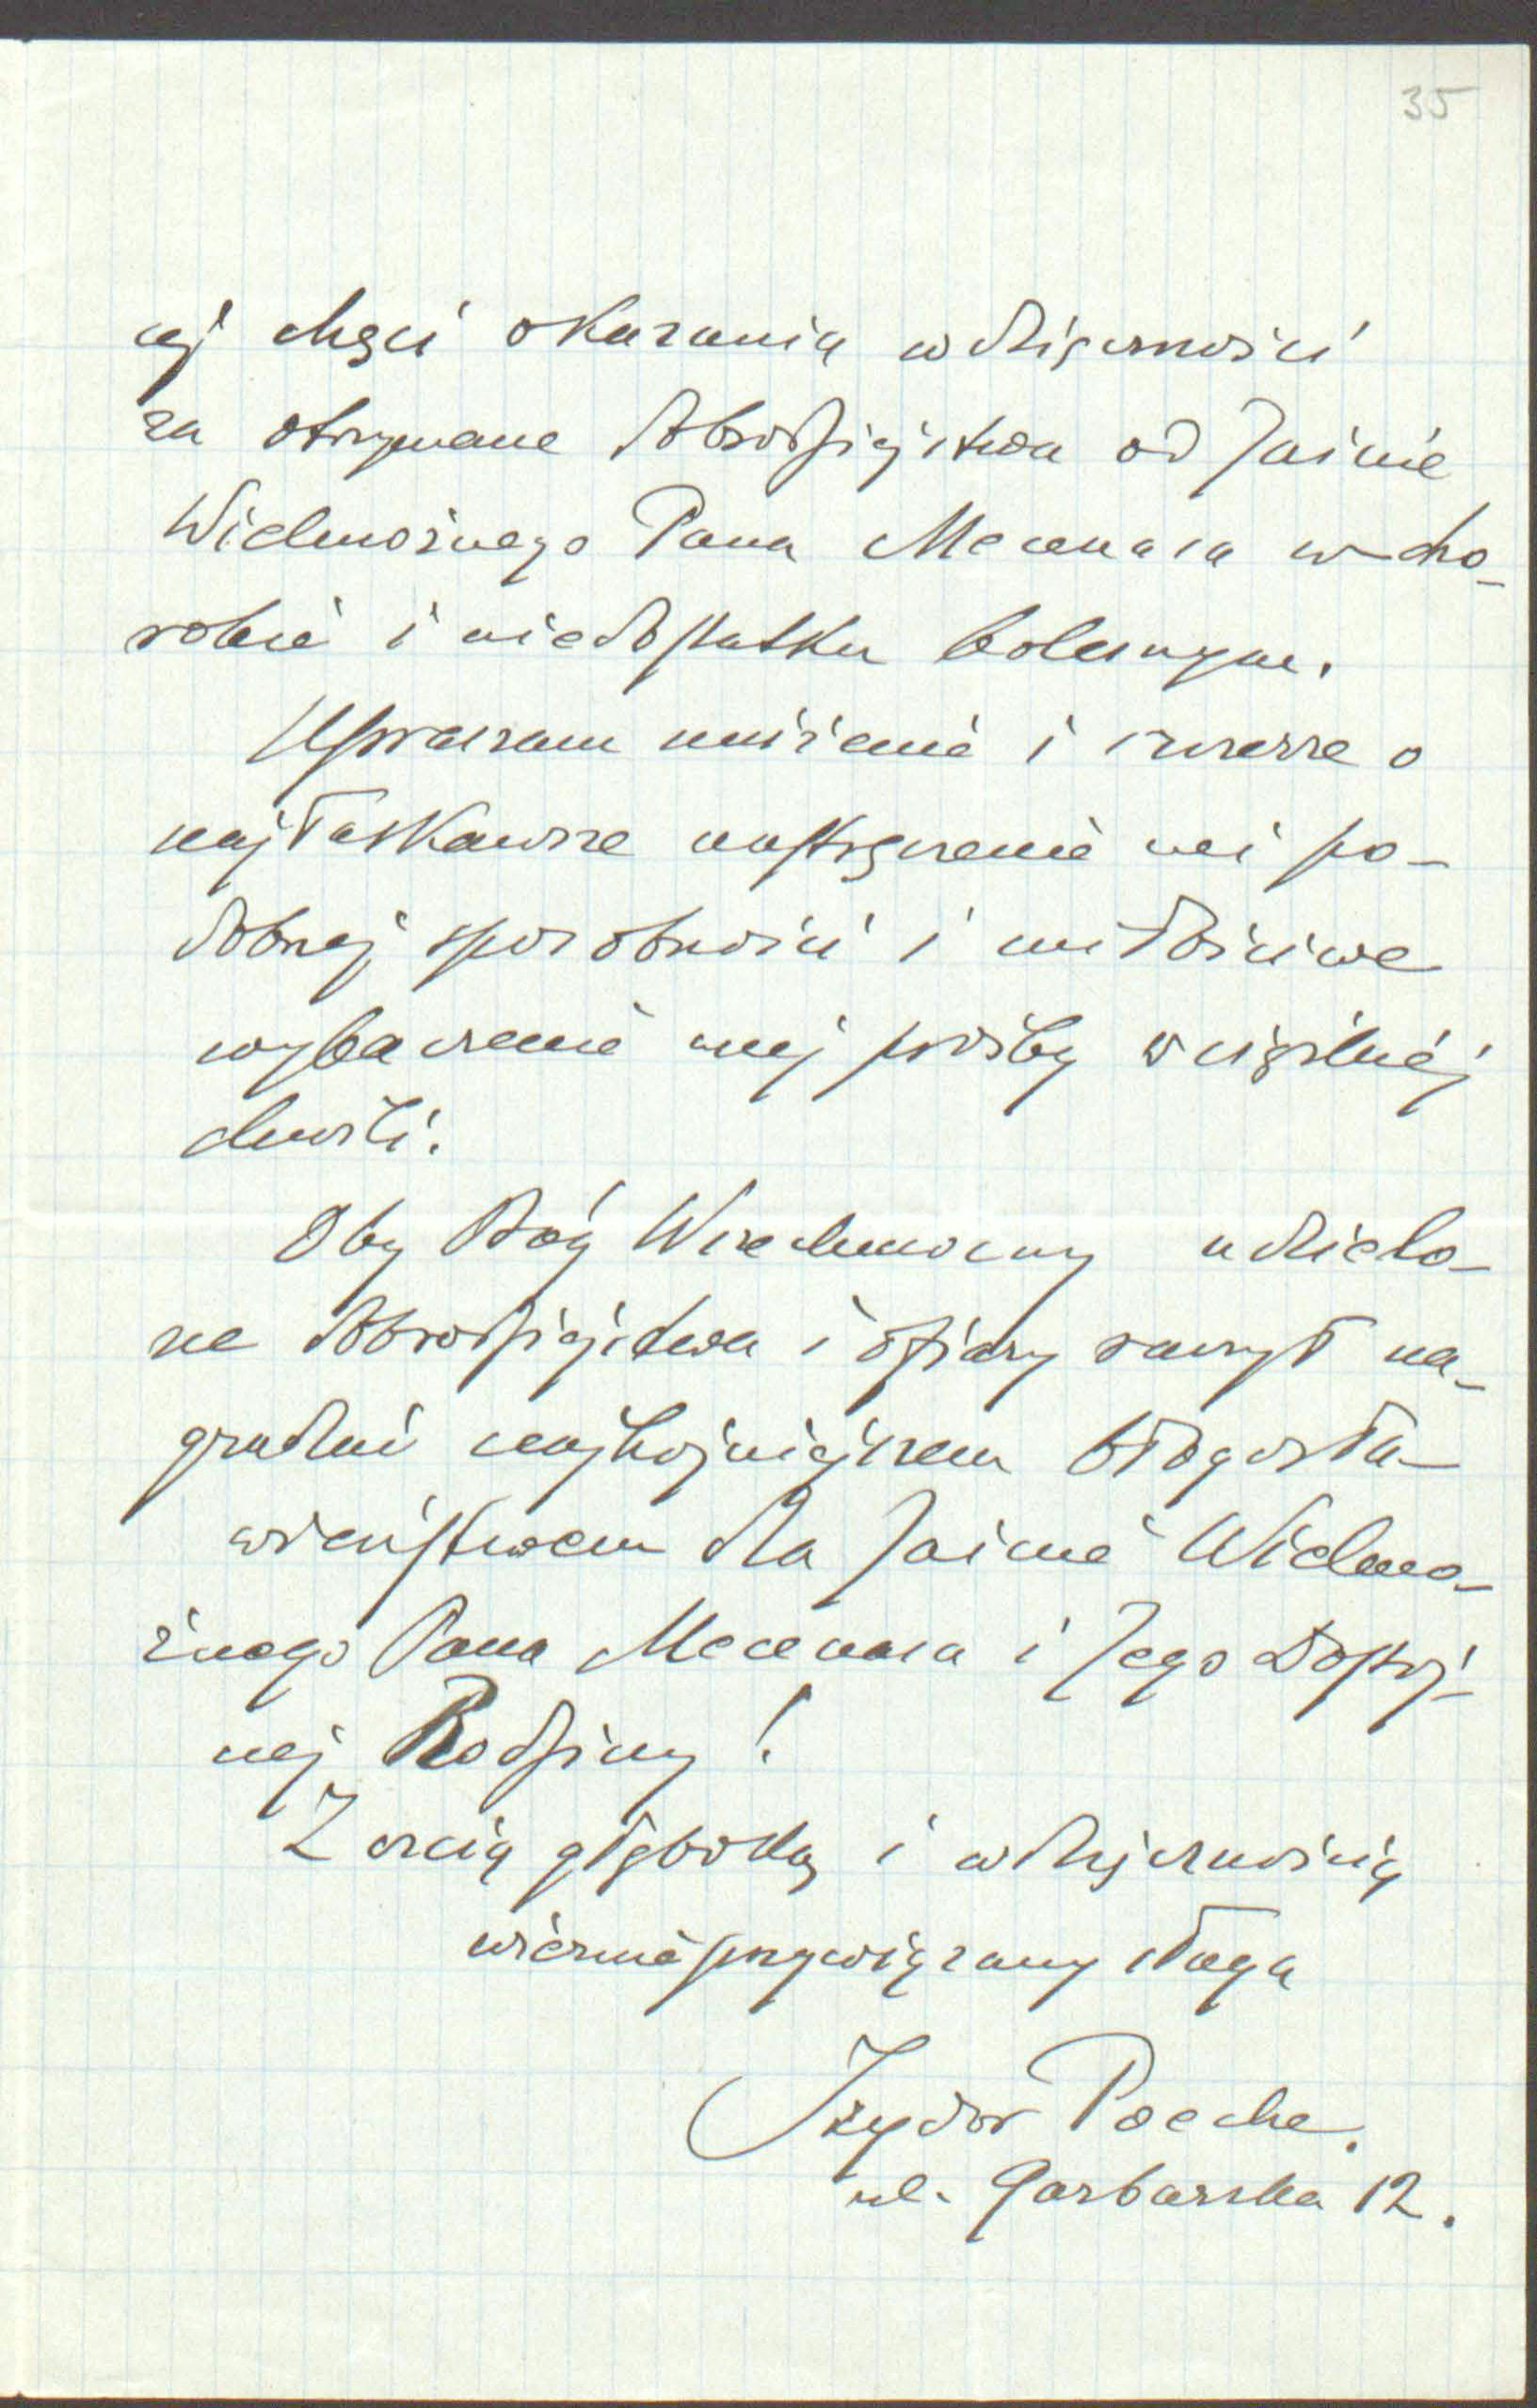 35
cej chęci okazania wdzięczności
za otrzymane dobrodziejstwa od Jaśnie
Wielmożnego Pana Mecenasa w cho-
robie i niedostatku bolesnym.
Upraszam uniżenie i szczerze o
najłaskawsze nastręczenie mi po-
dobnej sposobności i miłościwe
wybaczenie mej prośby w ciężkiej
chwili.
Oby Bóg Wszechmocny udzielo-
ne dobrodziejstwa i ofiary raczył na-
grodzić najhojniejszem błogosła-
wieństwem dla Jaśnie Wielmo-
żnego Pana Mecenasa i Jego Dostoj-
nej Rodziny!
Z czcią głęboką i wdzięcznością
wiernie przywiązany sługa
Izydor Poeche.
ul. Garbarska 12.